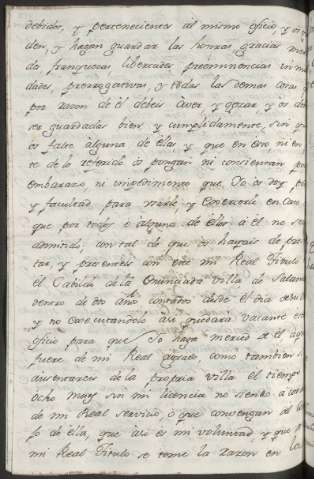 debidos, y pertenecientes al mismo oficio, y os
den, y hagan guardar las honras, gracias
das franquezas, libertades, preeminencias
dades, prerrogativas, y todas las demas cosas q
por razon de él debeis aver y gozar y os
ser guardadas bien y cumplidamente, sin
os falte alguna de ellas y que en ero ni en
te de lo referido os pongan ni consientan
embarazo, ni impedimento que Yo os doy
y facultad para usarle y exercerle en caso
que por todos ó alguno de ellos á él no se
admitido, con tal de que os hayais de
tar, y presenteis con este mi Real Titulo
el Cabildo de la villa de
dentro de año contados desde el dia de
y no executandolo asi quedará vacante
oficio para que Yo haga merced de él
fuere de mi Real agrado, como tambien
ausentareis de la propia villa el tiempo
ocho mas sin mi licencia no siendo á
de mi Real servicio, ó que convengan al
de ella, que asi es mi voluntad y que
mi Real Titulo se tome la razon en